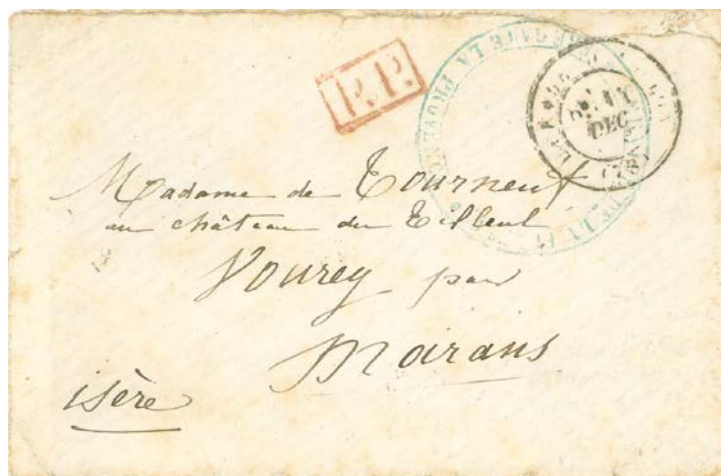 P.P.
FREGATE LA PROVENCE
DEC
Madame de Tourneuf
au château du Tilleul
Vourey par
Moirans
isère